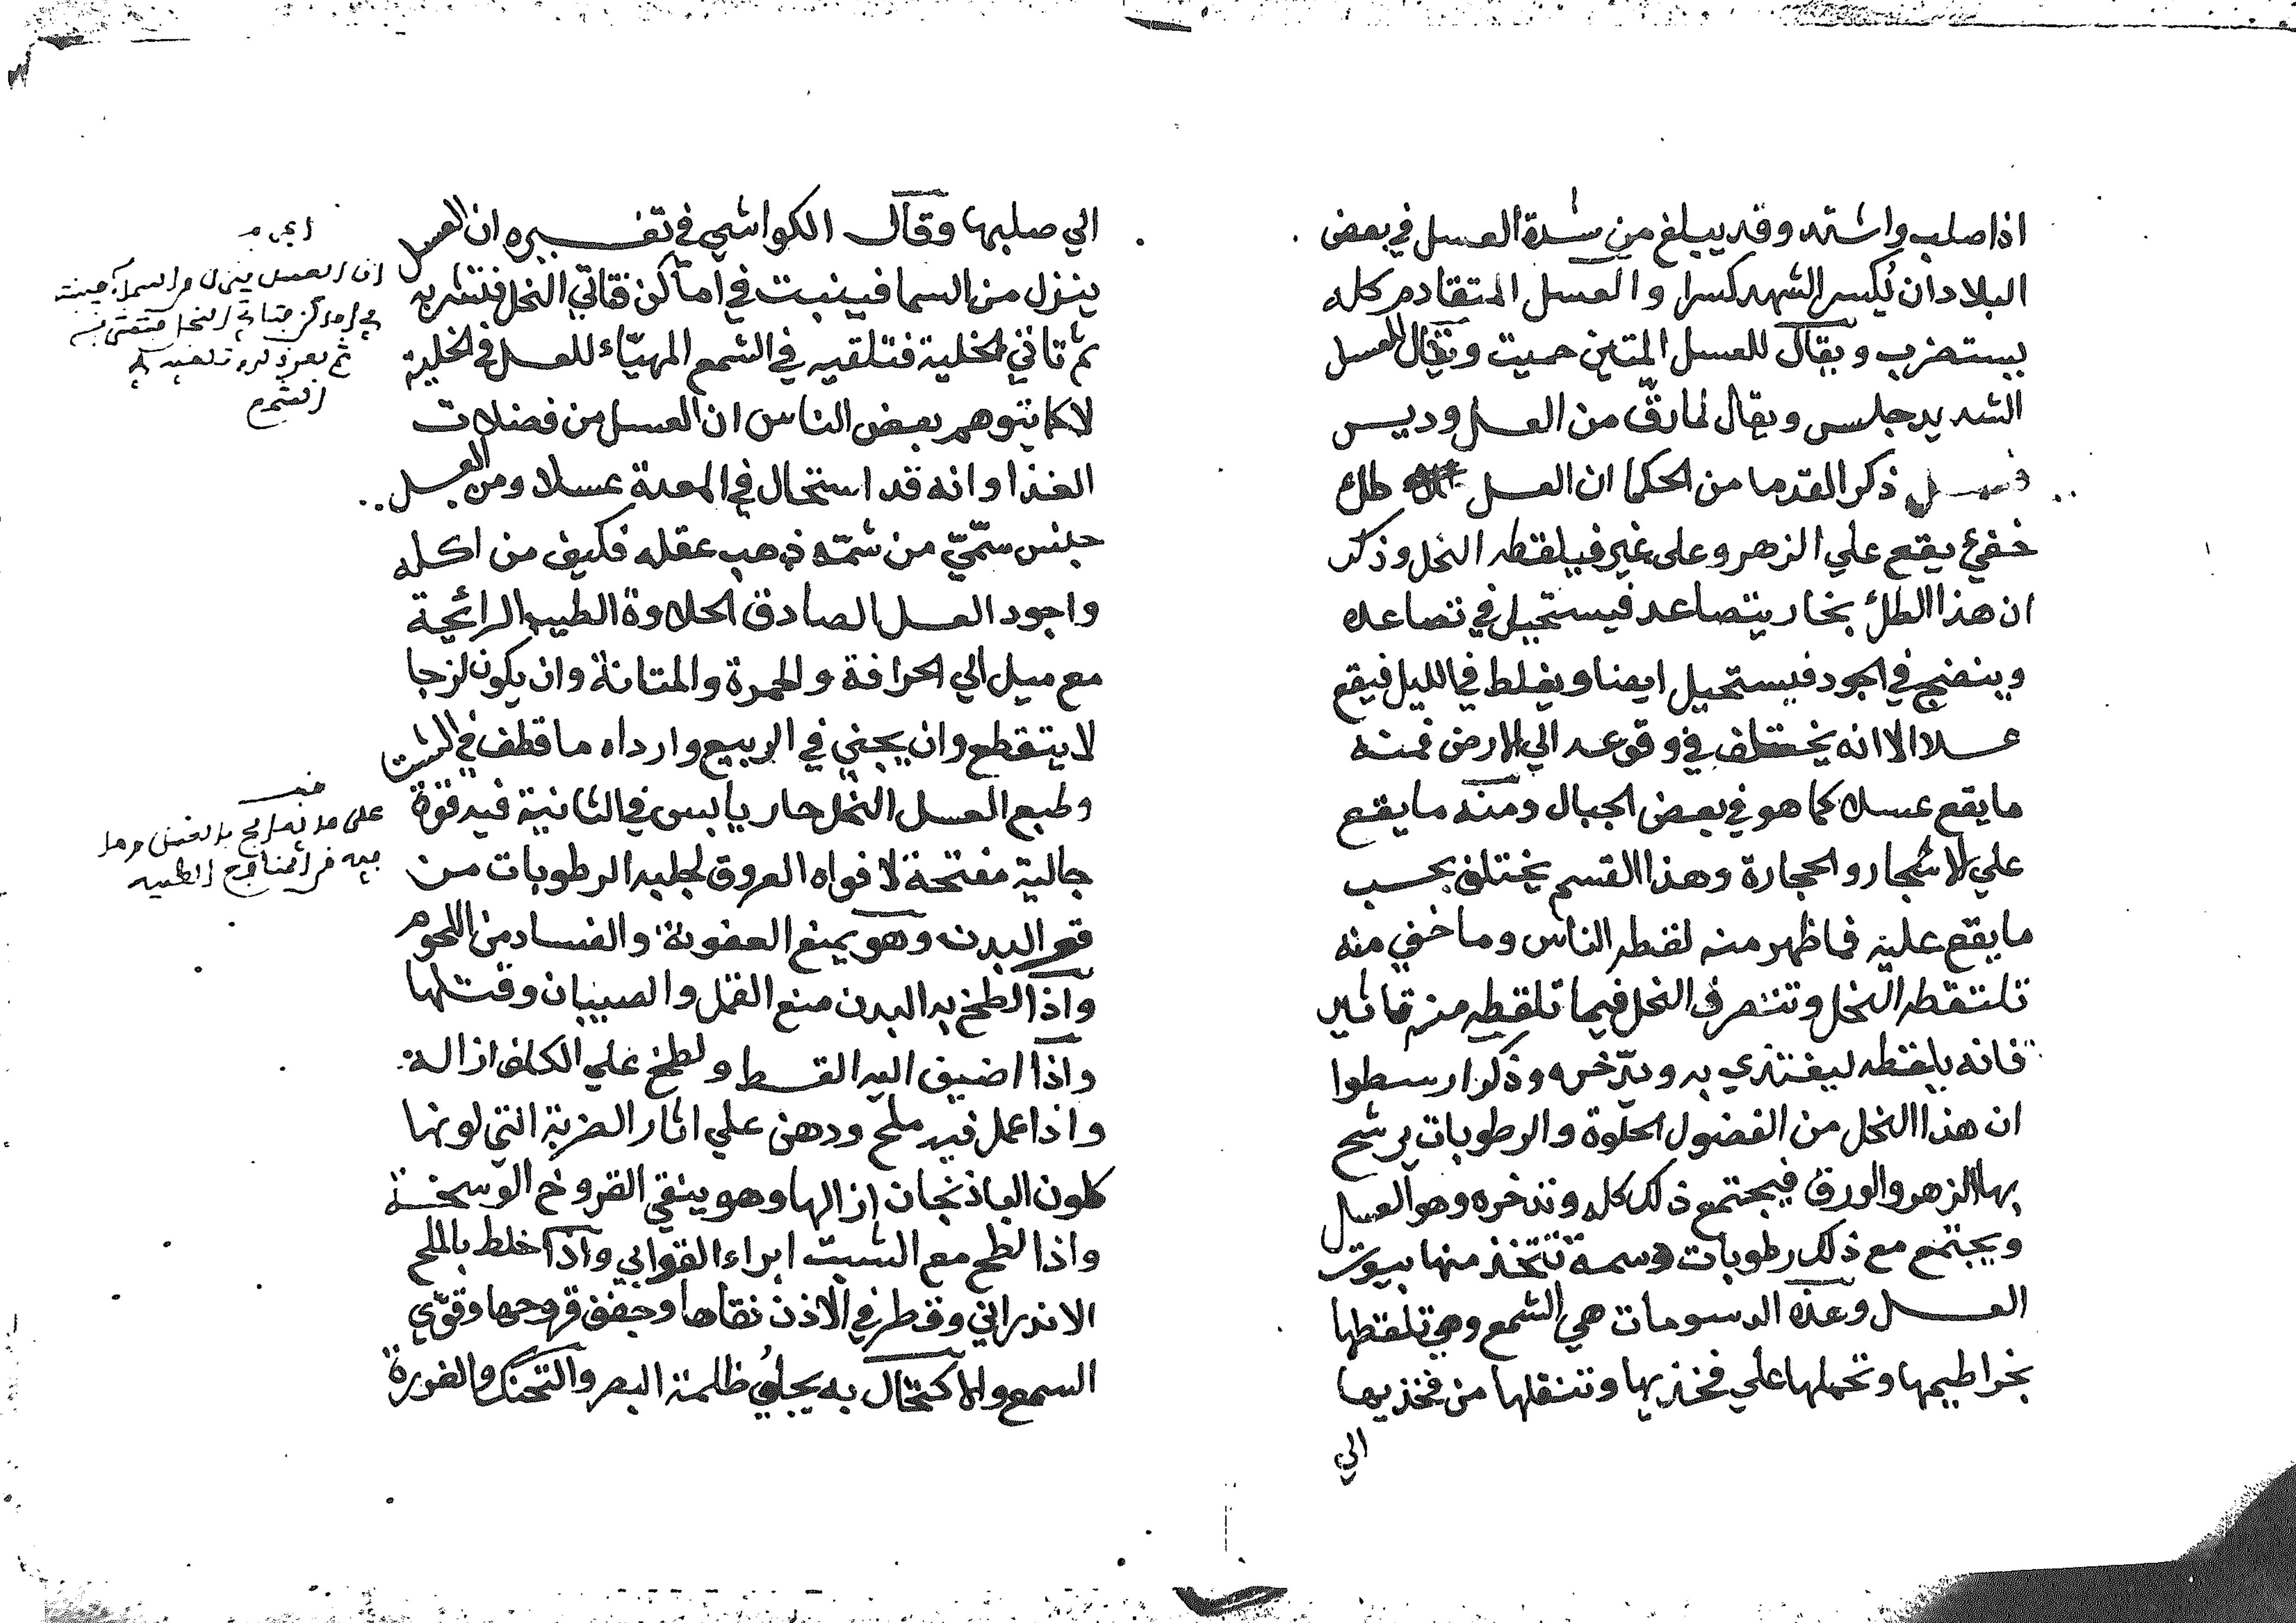 اذا صلب واشتد وقد يبلغ من شدة العسل في بعض
البلاد ان يُكسر الشهد كسرا والعسل المتقادم كله
يستضرب ويقال للعسل المتين حميت ويقال للعسل
الشديد جلس ويقال لما رقّ من العسل وديس
فصل ذكر القدما من الحكما ان العسل طلّ
خفيّ يقع علي الزهر وعلى غيره فيلقطه النحل وذكر
ان هذا الطلّ بخار يتصاعد فيستحيل في تصاعده
وينضج في الجو فيستحيل ايضا ويغلط في الليل فيقع
عسلا الا انه يختلف في وقوعه الي الارض فمنه
ما يقع عسلا كما هو في بعض الجبال ومنه ما يقع
علي الاشجار والحجارة وهذا القسم يختلف بحسب
ما يقع عليه فما ظهر منه لقطه الناس وما خفي منه
تلتقطه النخل وتتصرف النحل فيما تلقطه منه تاثير
فانه يلقطه ليغتذي به ويدّخره وذكر ارسطوا
ان هذا النخل من الفضول الحلوة والرطوبات يرشح
بها الزهر والورق فيجتمع ذلك كله وتدخره وهو العسل
ويجتمع مع ذلك رطوبات دسمة تتخذ منها بيوت
العسل وهذه الدسومات هي الشمع وهي تلقطها
بخراطيمها وتحملها علي فخذيها وتنقلها من فخذيها
الي
الي صلبها وقال الكواشي في تفسيره ان العسل
ينزل من السما فينبت في اماكن فتاتي النحل فتشربه
ثم تاتي الخلية فتلقيه في الشمع المهيّاء للعسل في الخلية
لا كما يتوهم بعض الناس ان العسل من فضلات
الغذا وانه قد استحال في المعدة عسلا ومن العسل
جنس سمّيّ من شمّه ذهب عقله فكيف من اكله
واجود العسل الصادق الحلاوة الطيب الرائحة
مع ميل الي الحرافة والحمرة والمتانة وان يكون لزجا
لا يتقطع وان يجني في الربيع وارداه ما قطف في الشت
وطبع العسل النحل حار يابس في الثانية فيه قوّة
جالية مفتحة لافواه العروق لجلبه الرطوبات من
قعر البدن وهو يمنع العفونة والفساد من اللحوم
واذا لطخ به البدن منع القمل والصيبان وقتلها
واذا اضيف اليه القسط ولطخ علي الكلف ازاله
واذا عمل فيه ملح ودهن علي اثار الضربة التي لونها
كلون الباذنجان ازالها وهو ينقي القروح الوسخة
واذا لطخ مع الشبت ابراء القوابي واذا خلط بالملح
الاندراني وقطر في الاذن نقاها وجفف قروحها وقوّي
السمع والاكتحال به يجلو ظلمة البصر والتحنك والغرغرة
ان العسل ينزل من السماء فينبت
في اماكن فتاتي النحل فتشربه
الشمع